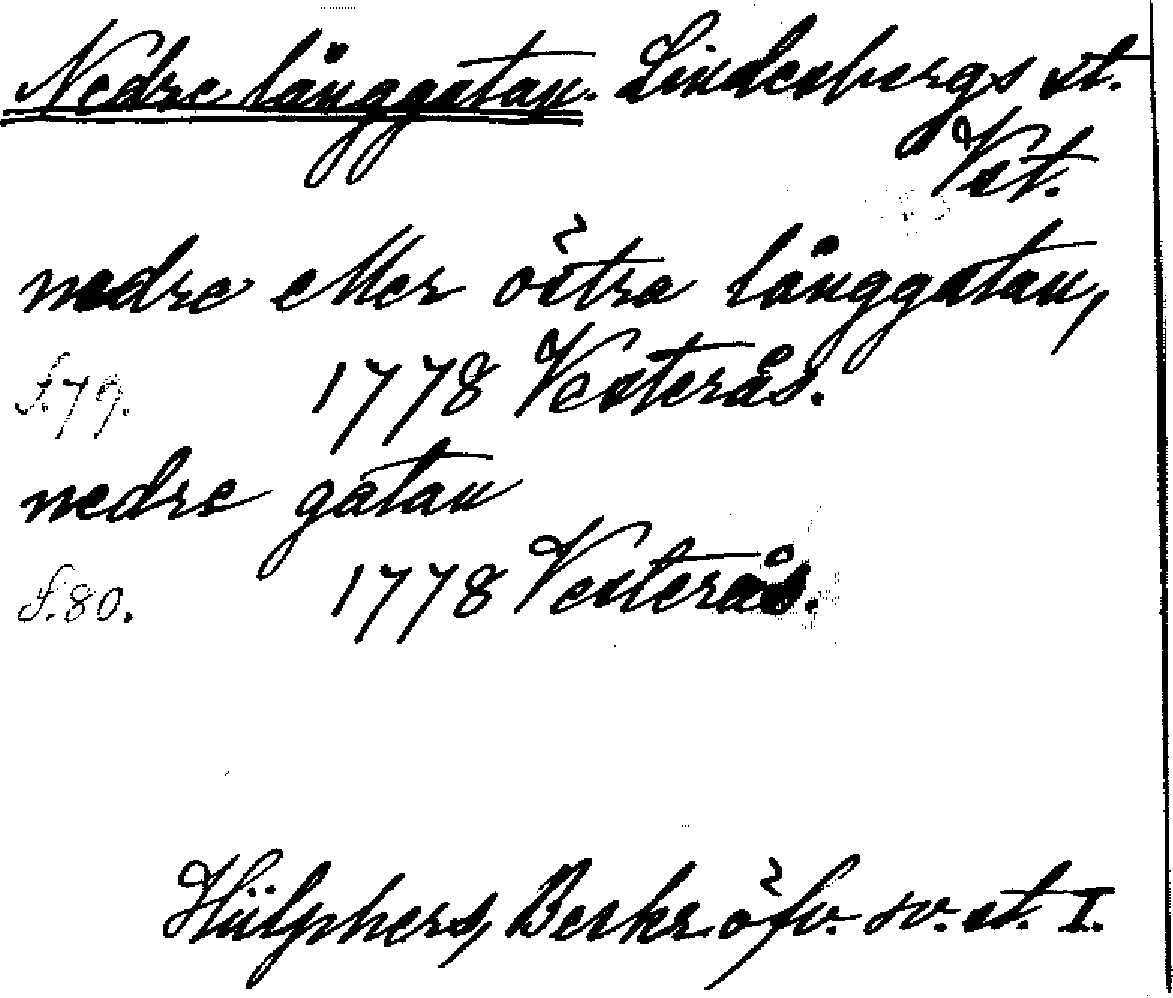 Nedre långgatan. Lindesbergs st.
Vst.
nedre eller östra långgatan,
s. 79. 1778 Vesterås.
nedre gatan
s. 80. 1778 Vesterås.
Hülphers, Beskr. öfv. sv. st. I.